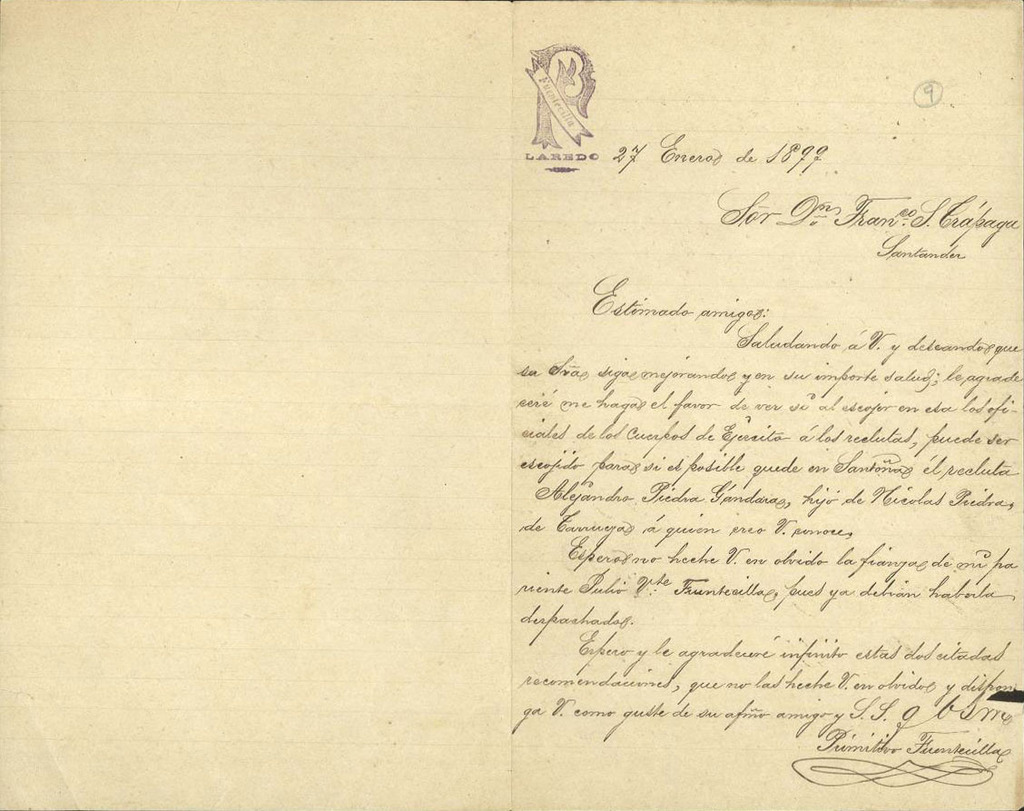 9
Fuentecilla
LAREDO
27 Enero de 1899
Sor Dn Franco. S. Trápaga
Santander
Estimado amigo:
Saludando á V. y deseando que
su Sra siga mejorando y en su importe salud; le agrade
ceré me haga el favor de ver si al escojer en esa los ofi-
ciales de los Cuerpos de Ejército á los reclutas, puede ser
escojido para si es posible quede en Santoña él recluta
Alejandro Piedra Gándara, hijo de Nicolas Piedra,
de Tarrueza á quien creo V. conoce.
Espero no heche V. en olvido la fianza de mi pa
riente Julio Vte. Fuentecilla, pues ya debian haberla
despachado.
Espero y le agradeceré infinito estas dos citadas
recomendaciones, que no las heche V. en olvido y dispon
ga V. como guste de su afmo amigo y S. S. q b s m
Primitivo Fuentecilla